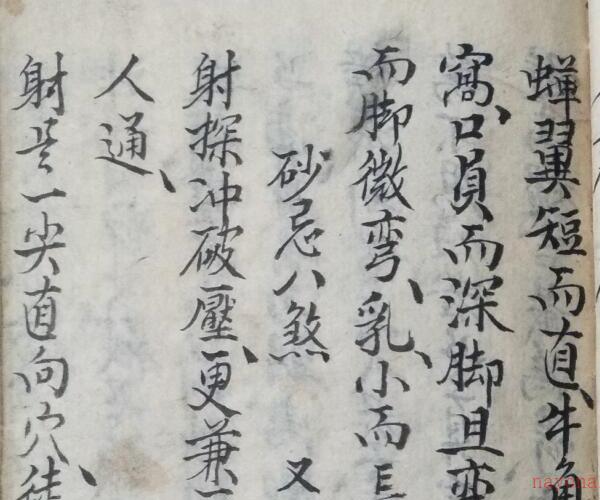 蟬翼短而直、牛角
窩、口員而深脚且
而脚微弯、乳、小而長
砂忌八煞 又
射探冲破壓、更兼
人通、
射是一尖直向穴、徒